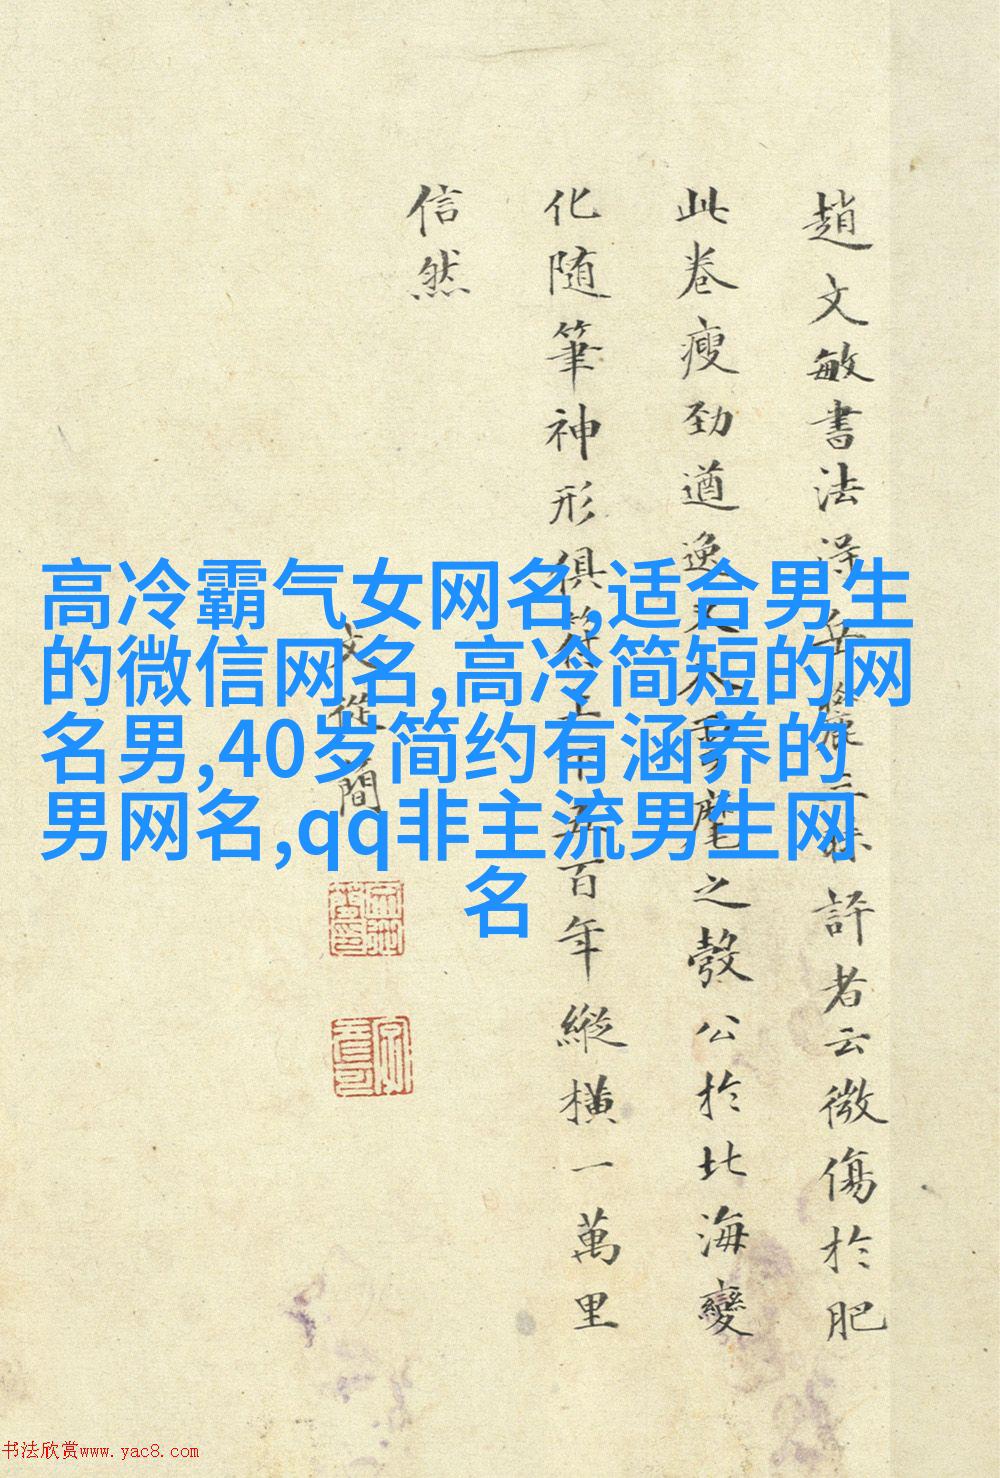 高冷霸气女网名,适合男生
的微信网名,高冷简短的网
名男,40岁简约有涵养的
男网名,qq非主流男生网
名
趙文敏書法得岳麓三昧評者云微傷於肥
此卷瘦勁遒逸又入雲麾之彀公於北海變
化随筆神形俱符上下五百年縱橫一萬里
信然
文從簡
书法欣赏www.yac8.com